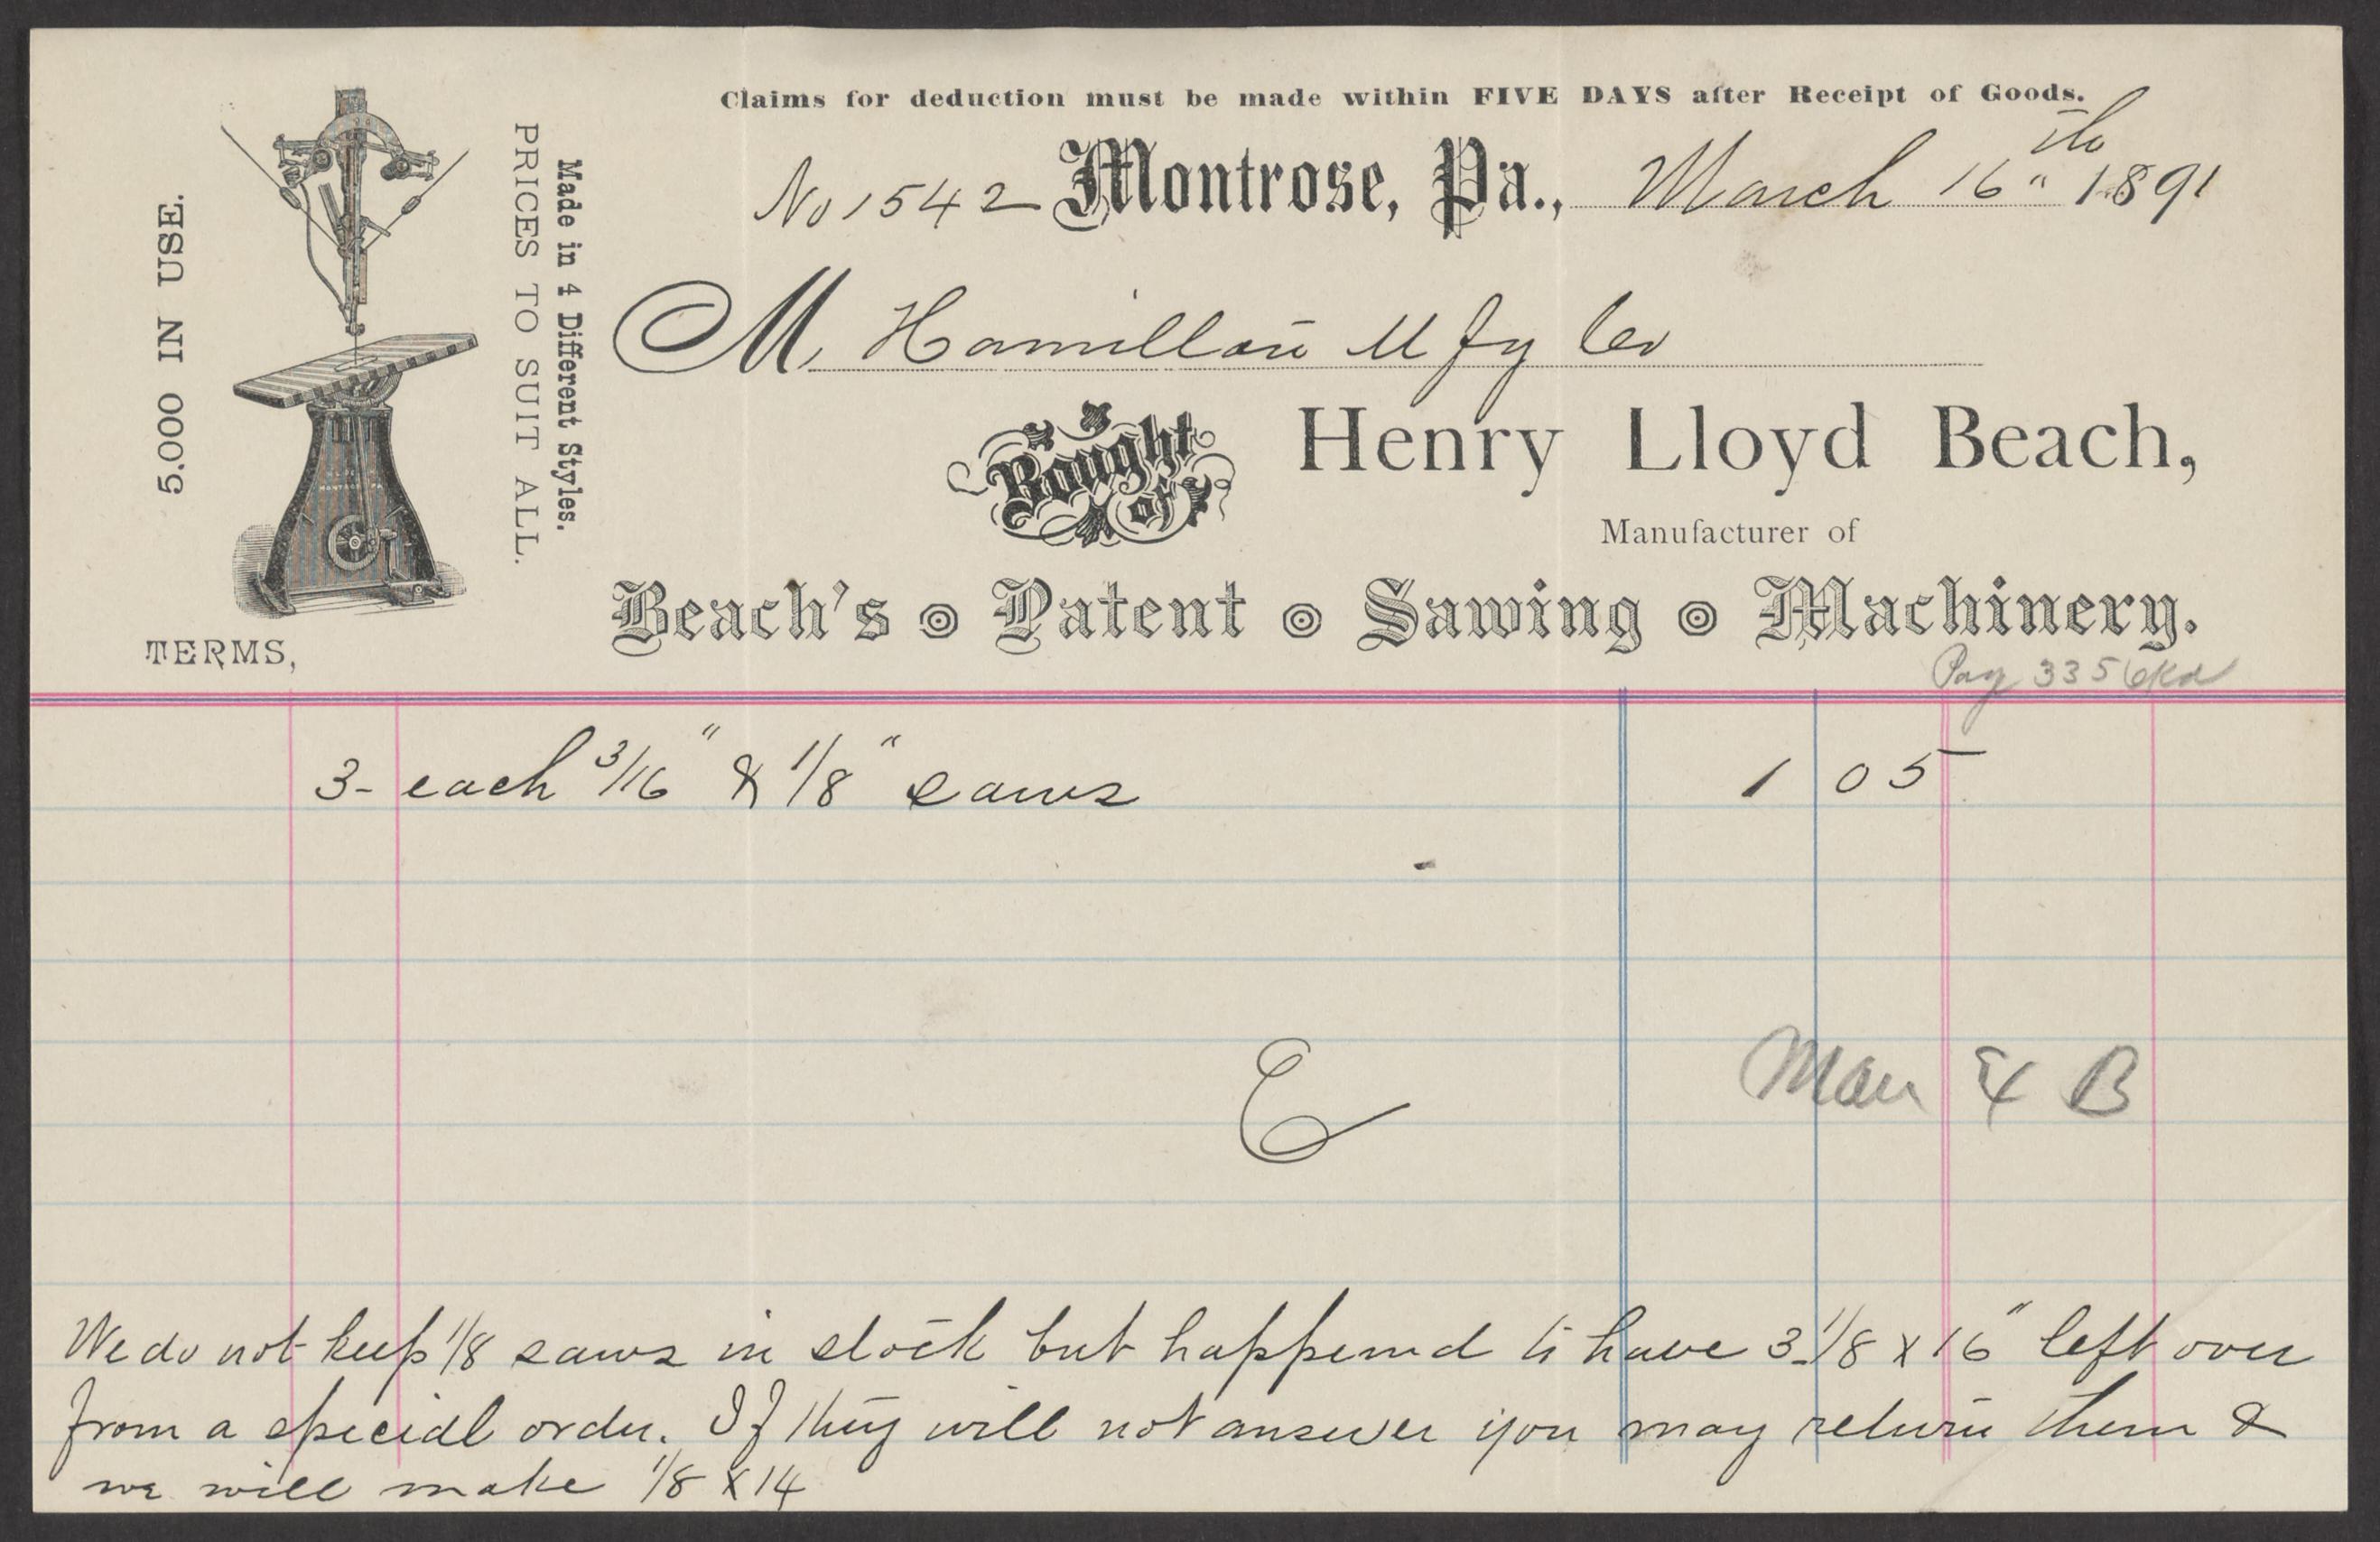 Claims for deduction must be made within FIVE DAYS after Receipt of Goods.
No 1542 Montrose, Pa., March 16" 1891
M. Hamilton Mfg Co
Bought of Henry Lloyd Beach,
Manufacturer of
Beach's Patent Sawing Machinery.
5.000 IN USE.
Made in 4 Different Styles.
PRICES TO SUIT ALL.
TERMS,
Pay 335
3- each 3/16" & 1/8" saws 1 05
&
B
We do not keep 1/8 saws in stock but happend to have 3 1/8 x 16" left over
from a special order. If they will not answer you may return them &
we will make 1/8 x 14